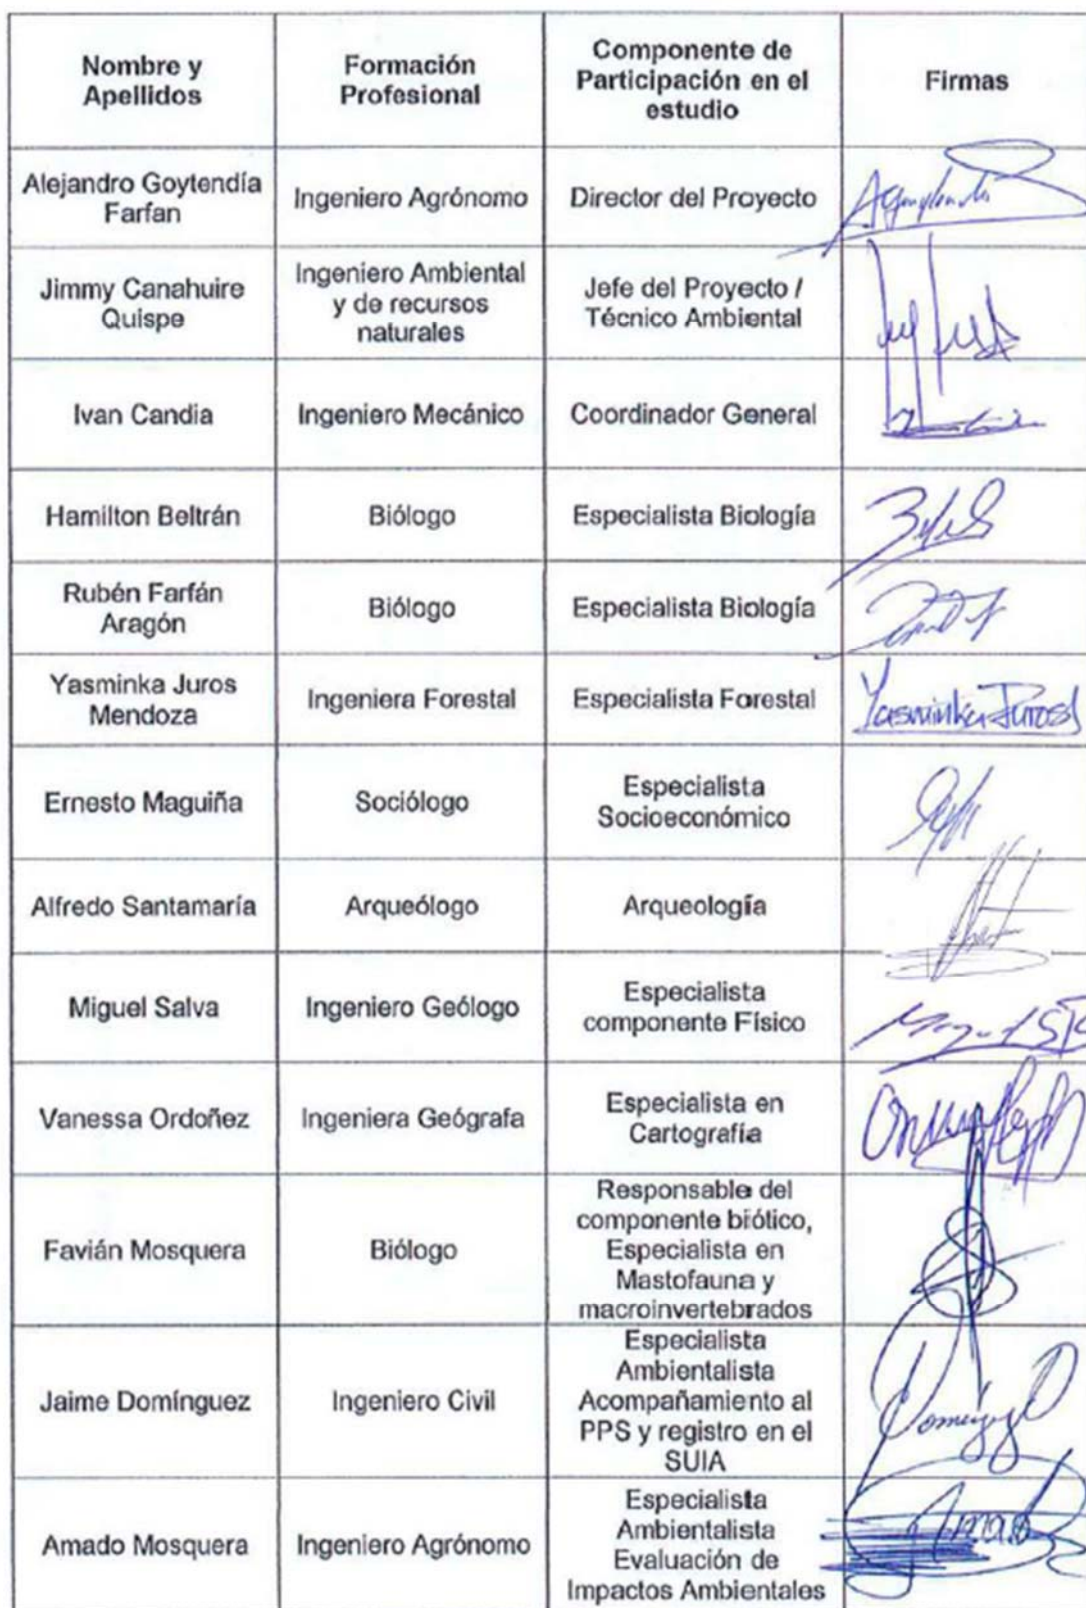 Nombre y
Apellidos
Formación
Profesional
Componente de
Participación en el
estudio
Firmas
Alejandro Goytendía
Farfan
Ingeniero Agrónomo
Director del Proyecto
Jimmy Canahuire
Quispe
Ingeniero Ambiental
y de recursos
naturales
Jefe del Proyecto /
Técnico Ambiental
Ivan Candia
Ingeniero Mecánico
Coordinador General
Hamilton Beltrán
Biólogo
Especialista Biología
Rubén Farfán
Aragón
Biólogo
Especialista Biología
Yasminka Juros
Mendoza
Ingeniera Forestal
Especialista Forestal
Yasminka Juros
Ernesto Maguiña
Sociólogo
Especialista
Socioeconómico
Alfredo Santamaría
Arqueólogo
Arqueología
Miguel Salva
Ingeniero Geólogo
Especialista
componente Físico
Vanessa Ordoñez
Ingeniera Geógrafa
Especialista en
Cartografía
Favián Mosquera
Biólogo
Responsable del
componente biótico,
Especialista en
Mastofauna y
macroinvertebrados
Jaime Domínguez
Ingeniero Civil
Especialista
Ambientalista
Acompañamiento al
PPS y registro en el
SUIA
Amado Mosquera
Ingeniero Agrónomo
Especialista
Ambientalista
Evaluación de
Impactos Ambientales